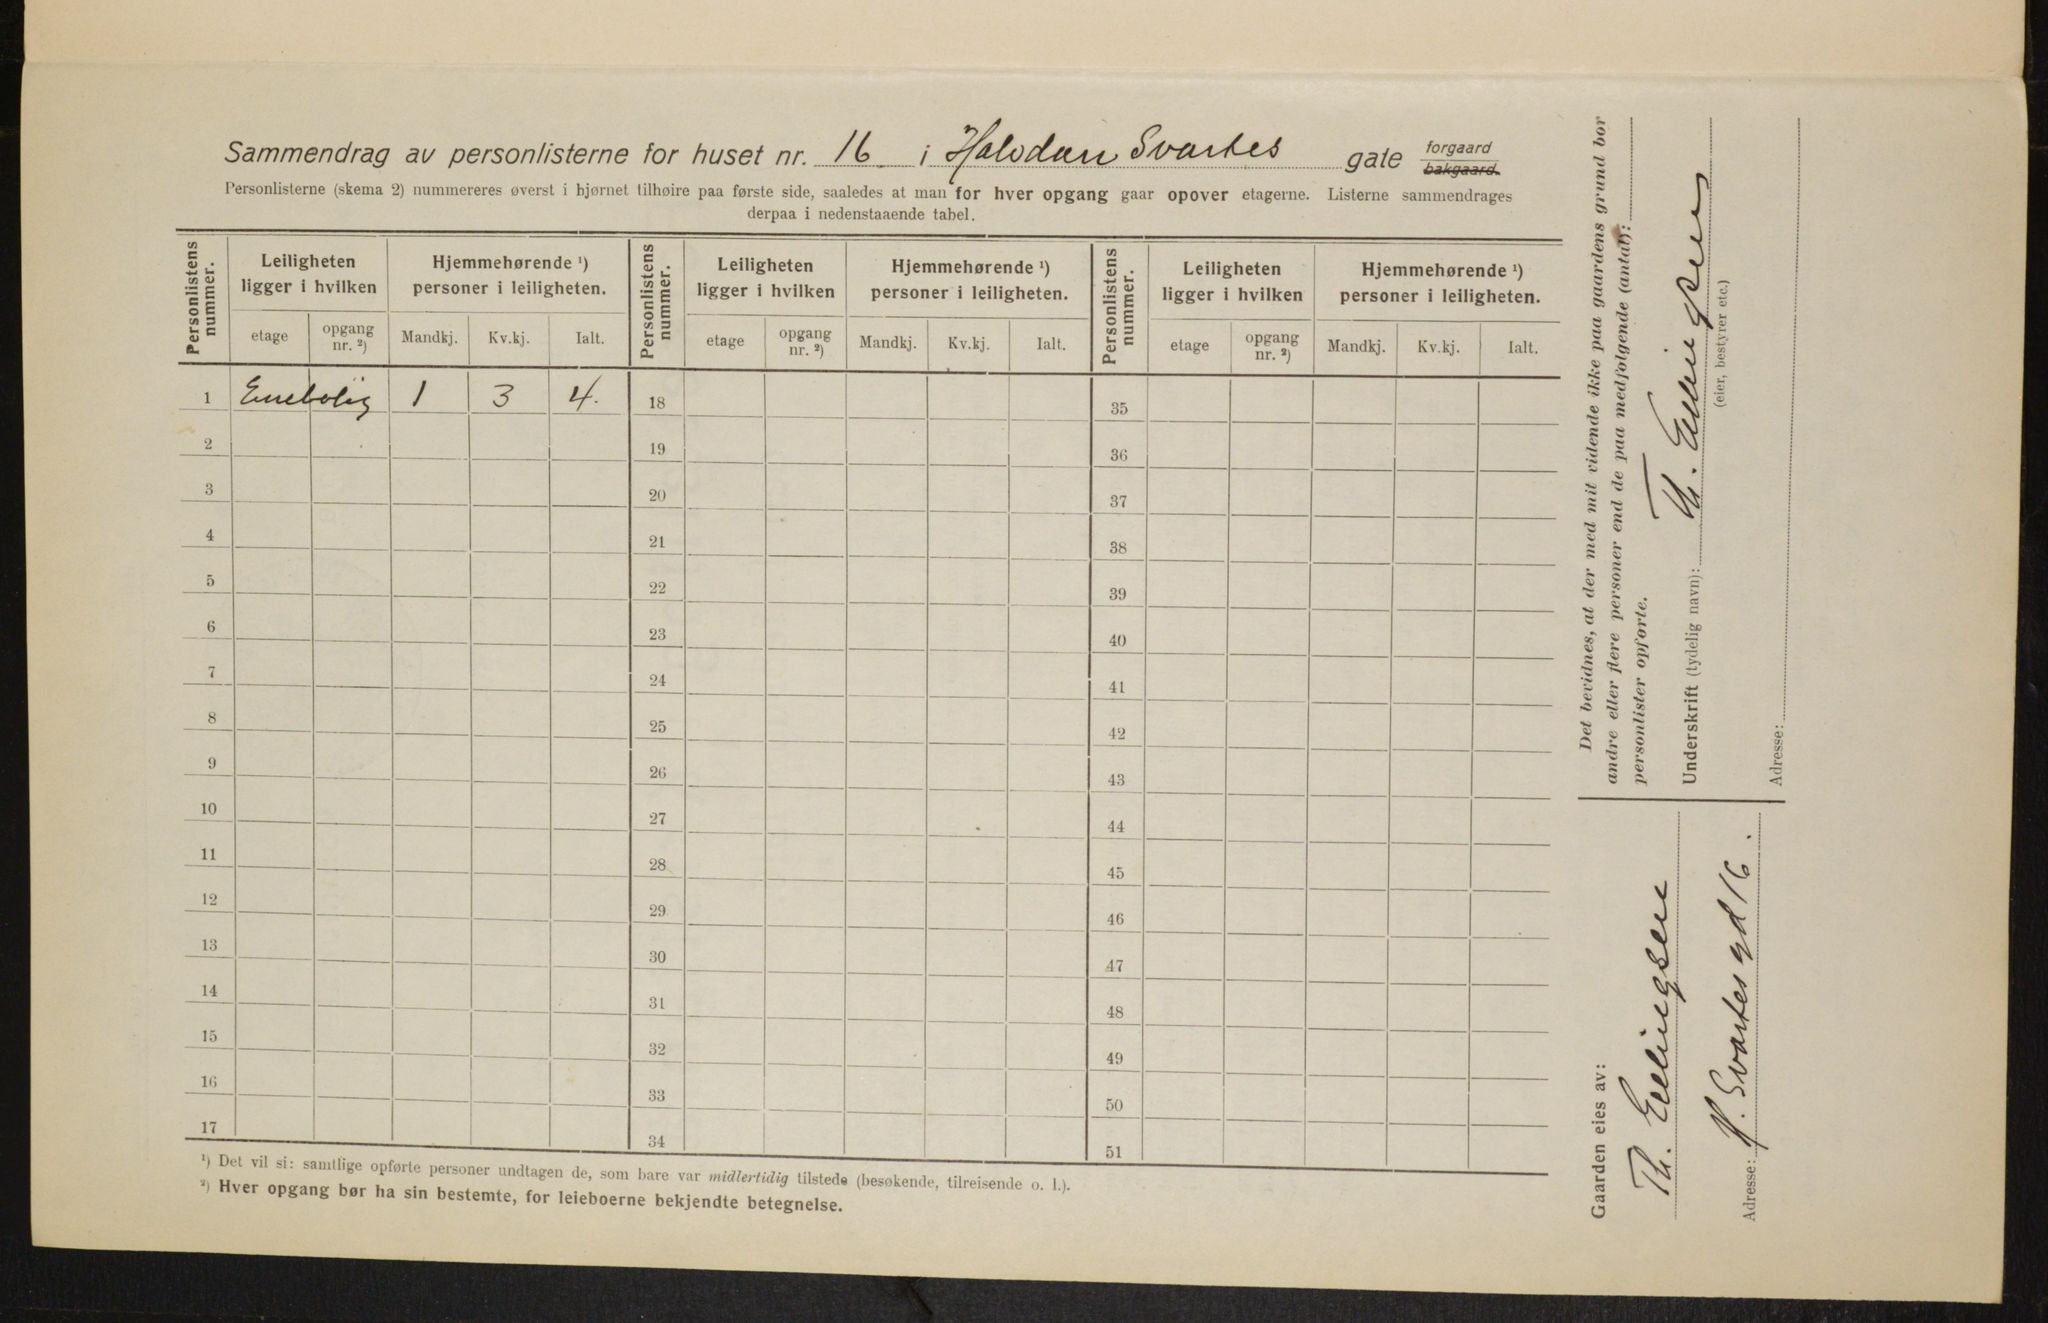 Sammendrag av personlisterne for huset nr. 16 i Halvdan Svartes gate forgaard bakgaard.
Personlisterne (skema 2) nummereres øverst i hjørnet tilhøire paa første side, saaledes at man for hver opgang gaar opover etagerne. Listerne sammendrages
derpaa i nedenstaaende tabel.
Personlistens nummer. Leiligheten ligger i hvilken Hjemmehørende ¹) personer i leiligheten. Personlistens nummer. Leiligheten ligger i hvilken Hjemmehørende ¹) personer i leiligheten. Personlistens nummer. Leiligheten ligger i hvilken Hjemmehørende ¹) personer i leiligheten.
etage opgang nr. ²) Mandkj. Kv.kj. Ialt. etage opgang nr. ²) Mandkj. Kv.kj. Ialt. etage opgang nr. ²) Mandkj. Kv.kj. Ialt.
1 Enebolig 1 3 4. 18 35
2 19 36
3 20 37
4 21 38
5 22 39
6 23 40
7 24 41
8 25 42
9 26 43
10 27 44
11 28 45
12 29 46
13 30 47
14 31 48
15 32 49
16 33 50
17 34 51
¹) Det vil si: samtlige opførte personer undtagen de, som bare var midlertidig tilstede (besøkende, tilreisende o. l.).
²) Hver opgang bør ha sin bestemte, for leieboerne bekjendte betegnelse.
Det bevidnes, at der med mit vidende ikke paa gaardens grund bor
andre eller flere personer end de paa medfølgende (antal):
personlister opførte.
Underskrift (tydelig navn): Th. Ellingsen
(eier, bestyrer etc.)
Adresse:
Gaarden eies av:
Th. Ellingsen
Adresse: H. Svartes gd 16.